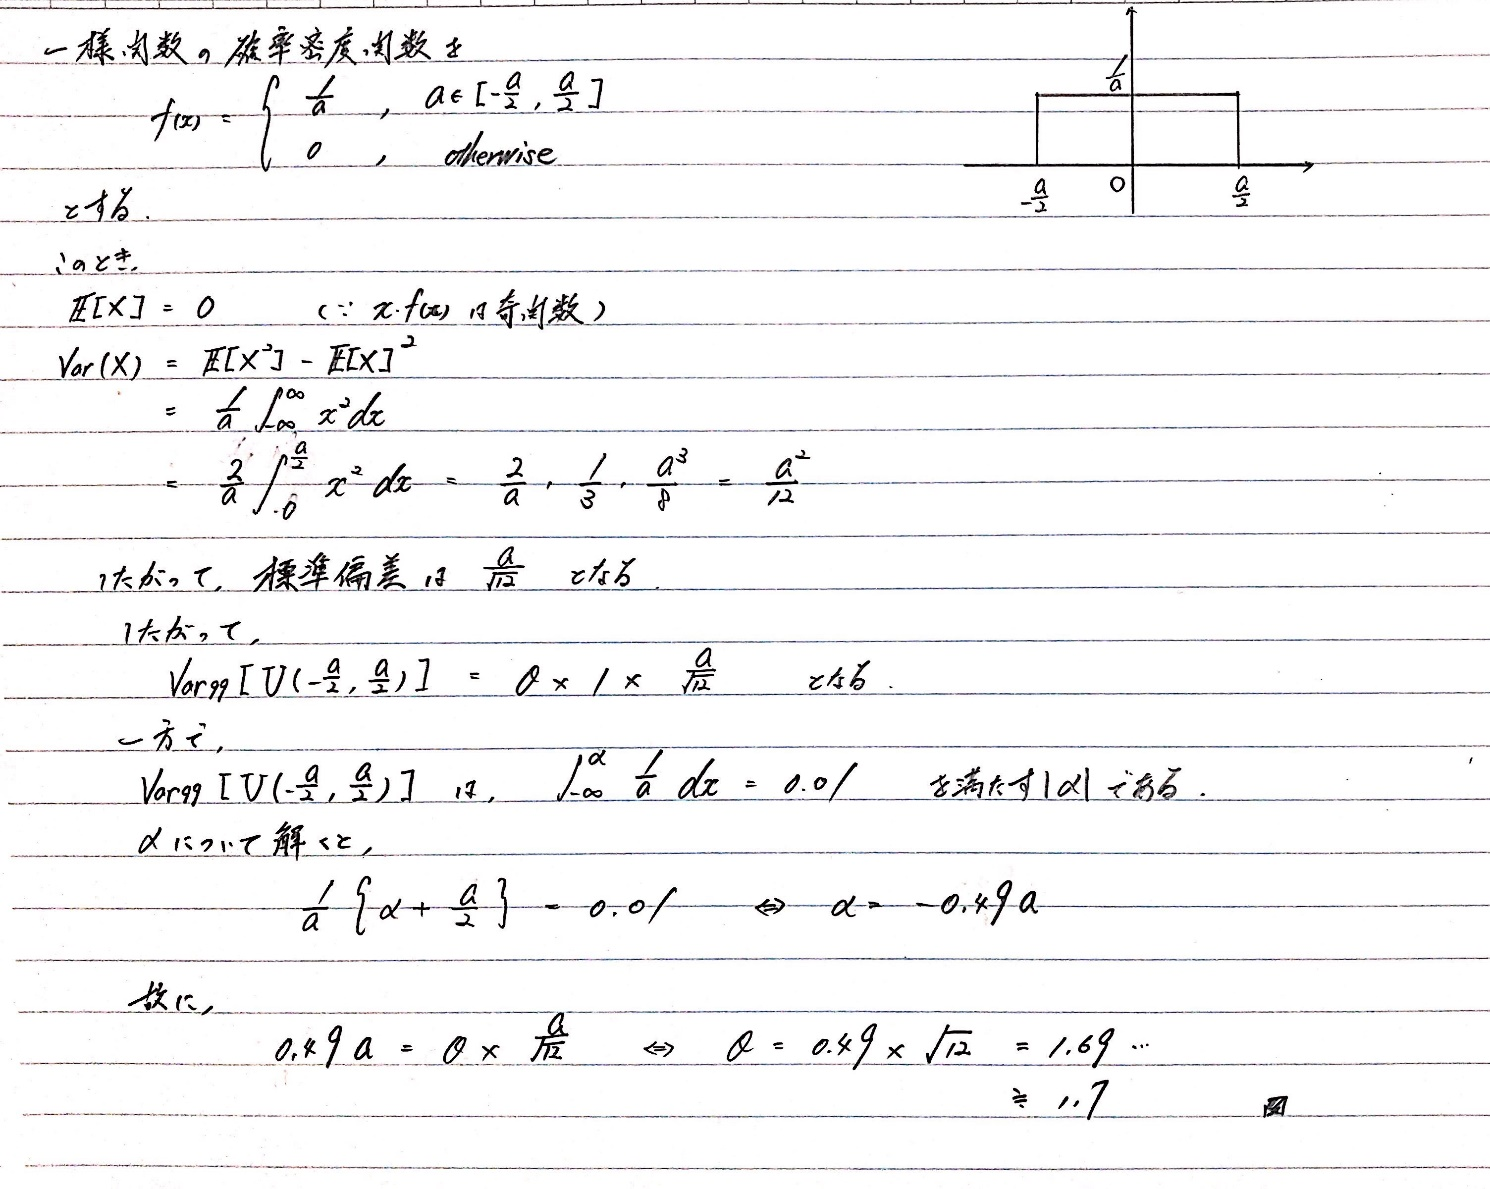 一様関数の確率密度関数を
f(x) = { 1/a , a∈[-a/2, a/2]
0 , otherwise
1/a
-a/2 0 a/2
とする.
このとき,
E[X] = 0 (∵ x・f(x) は奇関数)
Var(X) = E[X²] - E[X]²
= 1/a ∫_{-∞}^{∞} x² dx
= 2/a ∫_0^{a/2} x² dx = 2/a・1/3・a³/8 = a²/12
したがって, 標準偏差は a/√12 となる.
したがって,
Var99[U(-a/2, a/2)] = θ × 1 × a/√12 となる.
一方で,
Var99[U(-a/2, a/2)] は, ∫_{-∞}^{α} 1/a dx = 0.01 を満たす|α|である.
αについて解くと,
1/a {α + a/2} = 0.01 ⇔ α = -0.49a
故に,
0.49a = θ × a/√12 ⇔ θ = 0.49 × √12 = 1.69…
≒ 1.7